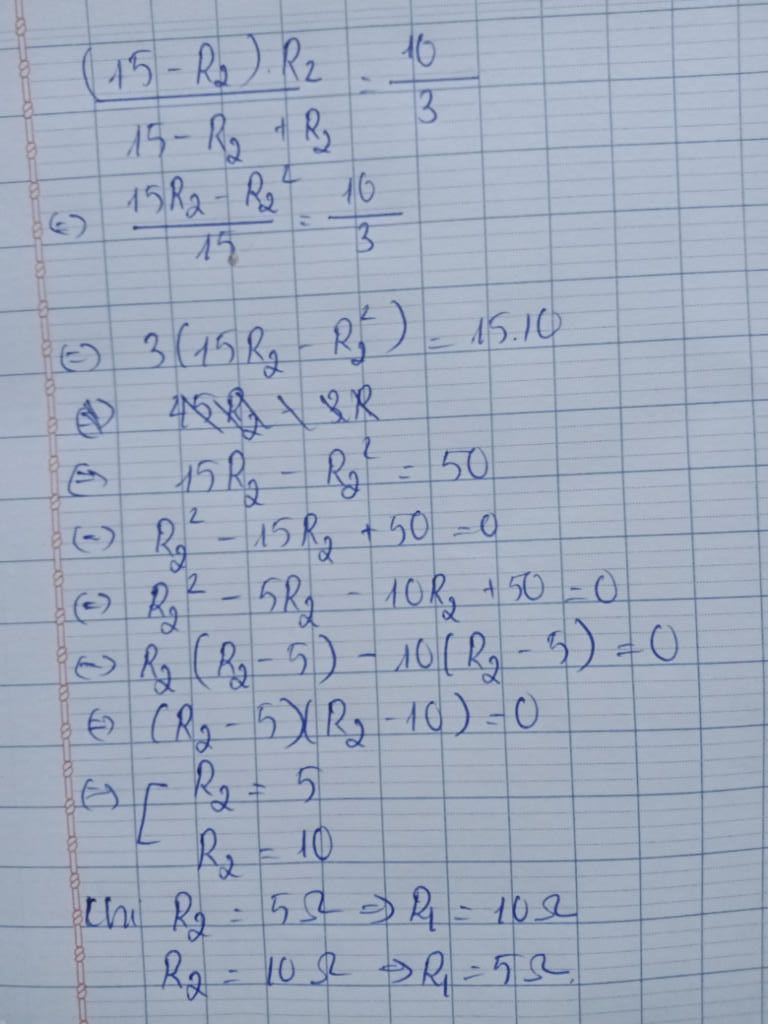 (15 - R₂).R₂ / 15 - R₂ + R₂ = 10 / 3
⇔ 15R₂ - R₂² / 15 = 10 / 3
⇔ 3(15R₂ - R₂²) = 15.10
⇔ 15R₂ - R₂² = 50
⇔ R₂² - 15R₂ + 50 = 0
⇔ R₂² - 5R₂ - 10R₂ + 50 = 0
⇔ R₂(R₂ - 5) - 10(R₂ - 5) = 0
⇔ (R₂ - 5)(R₂ - 10) = 0
⇔ [ R₂ = 5
R₂ = 10
R₂ = 5Ω ⇒ R₁ = 10Ω
R₂ = 10Ω ⇒ R₁ = 5Ω.